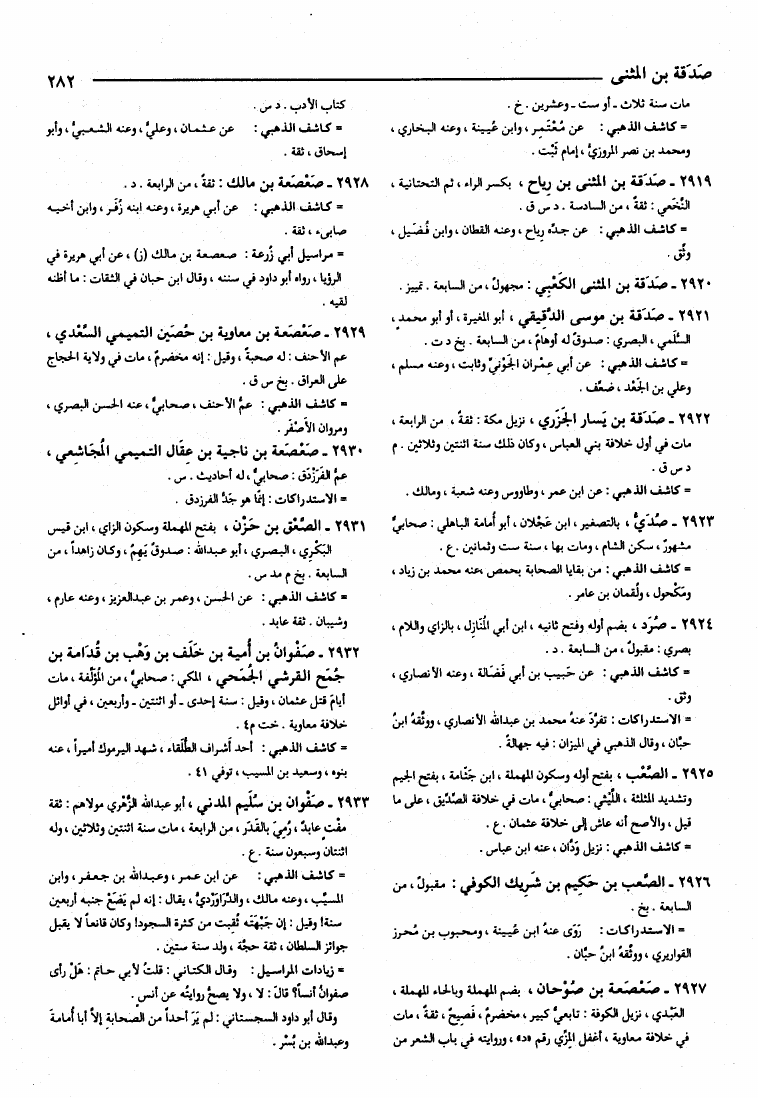 صَدَقة بن المثنى
٢٨٢
مات سنة ثلاث ـ أو ست ـ وعشرين . خ .
= كاشف الذهبي : عن مُعْتَمِر ، وابن عُيينة ، وعنه البخاري ،
ومحمد بن نصر المروزيُّ ، إمام ثَبْت .
٢٩١٩ ـ صَدَقة بن المثنى بن رِياح ، بكسر الراء ، ثم التحتانية ،
النَّخعي : ثقةٌ ، من السادسة . د س ق .
= كاشف الذهبي : عن جدِّه رِياح ، وعنه القطان ، وابن فُضَيل ،
وثِّق .
٢٩٢٠ ـ صَدَقة بن المثنى الكَعْبي : مجهولٌ ، من السابعة . تمييز .
٢٩٢١ ـ صَدَقة بن موسى الدَّقيقي ، أبو المغيرة ، أو أبو محمد ،
السُّلَمي ، البصري : صدوقٌ له أوهامٌ ، من السابعة . بخ د ت .
= كاشف الذهبي : عن أبي عِمْران الجَوْنيّ وثابت ، وعنه مسلم ،
وعلي بن الجَعْد ، ضعِّف .
٢٩٢٢ ـ صَدَقة بن يَسار الجَزَري ، نزيل مكة : ثقةٌ ، من الرابعة ،
مات في أول خلافة بني العباس ، وكان ذلك سنة اثنتين وثلاثين . م
د س ق .
= كاشف الذهبي : عن ابن عمر ، وطاووس وعنه شعبة ، ومالك .
٢٩٢٣ ـ صُدَيُّ ، بالتصغير ، ابن عَجْلان ، أبو أُمامة الباهلي : صحابيٌّ
مشهورٌ ، سكن الشام ، ومات بها ، سنة ست وثمانين . ع .
= كاشف الذهبي : من بقايا الصحابة بحمص ، عنه محمد بن زياد ،
ومَكْحول ، ولُقمان بن عامر .
٢٩٢٤ ـ صُرَد ، بضم أوله وفتح ثانيه ، ابن أبي المُنازِل ، بالزاي واللام ،
بصري : مقبولٌ ، من السابعة . د .
= كاشف الذهبي : عن حَبيب بن أبي فَضَالة ، وعنه الأنصاري ،
وثق .
= الاستدراكات : تفرَّدَ عنهُ محمد بن عبدالله الأنصاري ، ووثَّقهُ ابنُ
حبَّان ، وقال الذهبي في الميزان : فيه جهالةٌ .
٢٩٢٥ ـ الصَّعْب ، بفتح أوله وسكون المهملة ، ابن جَثَّامة ، بفتح الجيم
وتشديد المثلثة ، اللَّيْثي : صحابيٌّ ، مات في خلافة الصِّدِّيق ، على ما
قيل ، والأصح أنه عاش إلى خلافة عثمان . ع .
= كاشف الذهبي : نزيل وَدَّان ، عنه ابن عباس .
٢٩٢٦ ـ الصَّعب بن حَكيم بن شَريك الكوفي : مقبولٌ ، من
السابعة . بخ .
= الاستدراكات : رَوَى عنهُ ابن عُيينة ، ومحبوب بن مُحرز
القواريري ، ووثَّقهُ ابنُ حبَّان .
٢٩٢٧ ـ صَعْصَعة بن صُوْحان ، بضم المهملة وبالحاء المهملة ،
العَبْدي ، نزيل الكوفة : تابعيٌّ كبير ، مخضرمٌ ، فَصيحٌ ، ثقةٌ ، مات
في خلافة معاوية ، أغفل المِزِّي رقم «د» ، وروايته في باب الشعر من
كتاب الأدب . د س .
= كاشف الذهبي : عن عثمان ، وعليٌّ ، وعنه الشعبيُّ ، وأبو
إسحاق ، ثقة .
٢٩٢٨ ـ صَعْصَعة بن مالك : ثقةٌ ، من الرابعة . د .
= كاشف الذهبي : عن أبي هريرة ، وعنه ابنه زُفَر ، وابن أخيه
صابىء ، ثقة .
= مراسيل أبي زُرعة : صعصعة بن مالك (ز) ، عن أبي هريرة في
الرؤيا ، رواه أبو داود في سننه ، وقال ابن حبان في الثقات : ما أظنه
لقيه .
٢٩٢٩ ـ صَعْصَعة بن معاوية بن حُصَين التميمي السَّعْدي ،
عم الأحنف : له صحبةٌ ، وقيل : إنه مخضرمٌ ، مات في ولاية الحجاج
على العراق . بخ س ق .
= كاشف الذهبي : عمُّ الأحنف ، صحابيٌّ ، عنه الحسن البصري ،
ومروان الأَصْفَر .
٢٩٣٠ ـ صَعْصَعة بن ناجية بن عِقَال التميمي المُجَاشِعي ،
عمُّ الفَرَزْدَق : صحابيٌّ ، له أحاديث . س .
= الاستدراكات : إنَّما هو جَدُّ الفرزدق .
٢٩٣١ ـ الصَّعْق بن حَزْن ، بفتح المهملة وسكون الزاي ، ابن قيس
البَكْري ، البصري ، أبو عبدالله : صدوقٌ يَهِمُ ، وكان زاهداً ، من
السابعة . بخ م مد س .
= كاشف الذهبي : عن الحسن ، وعمر بن عبدالعزيز ، وعنه عارم ،
وشيبان . ثقة عابد .
٢٩٣٢ ـ صَفْوانُ بن أُمية بن خَلَف بن وَهْب بن قُدَامة بن
جُمَح القرشي الجُمَحي ، المكي : صحابيٌّ ، من المؤلَّفة ، مات
أيامَ قتل عثمان ، وقيل : سنة إحدى ـ أو اثنتين ـ وأربعين ، في أوائل
خلافة معاوية . خت م٤ .
= كاشف الذهبي : أحد أَشراف الطُّلَقاء ، شهد اليرموك أميراً ، عنه
بنوه ، وسعيد بن المسيب ، توفي ٤١ .
٢٩٣٣ ـ صَفْوان بن سُلَيم المدني ، أبو عبدالله الزُّهري مولاهم : ثقة
مفْتٍ عابدٌ ، رُمِيَ بالقَدَر ، من الرابعة ، مات سنة اثنتين وثلاثين ، وله
اثنتان وسبعون سنة . ع .
= كاشف الذهبي : عن ابن عمر ، وعبدالله بن جعفر ، وابن
المسيِّب ، وعنه مالك ، والدَّرَاوَرْديُّ ، يقال : إنه لم يَضَعْ جنبه أربعين
سنة! وقيل : إن جَبْهَتَه نُقِبت من كثرة السجود! وكان قانعاً لا يقبل
جوائز السلطان ، ثقة حجَّة ، ولد سنة ستين .
= زيادات المراسيل : وقال الكتاني : قلتُ لأبي حاتم : هَلْ رأى
صفوانُ أنساً؟ قالَ : لا ، ولا يصحُّ روايتُه عن أنس .
وقال أبو داود السجستاني : لم يَرَ أحداً من الصحابةِ إلاَّ أبا أُمامةَ
وعبدالله بن بُسْر .